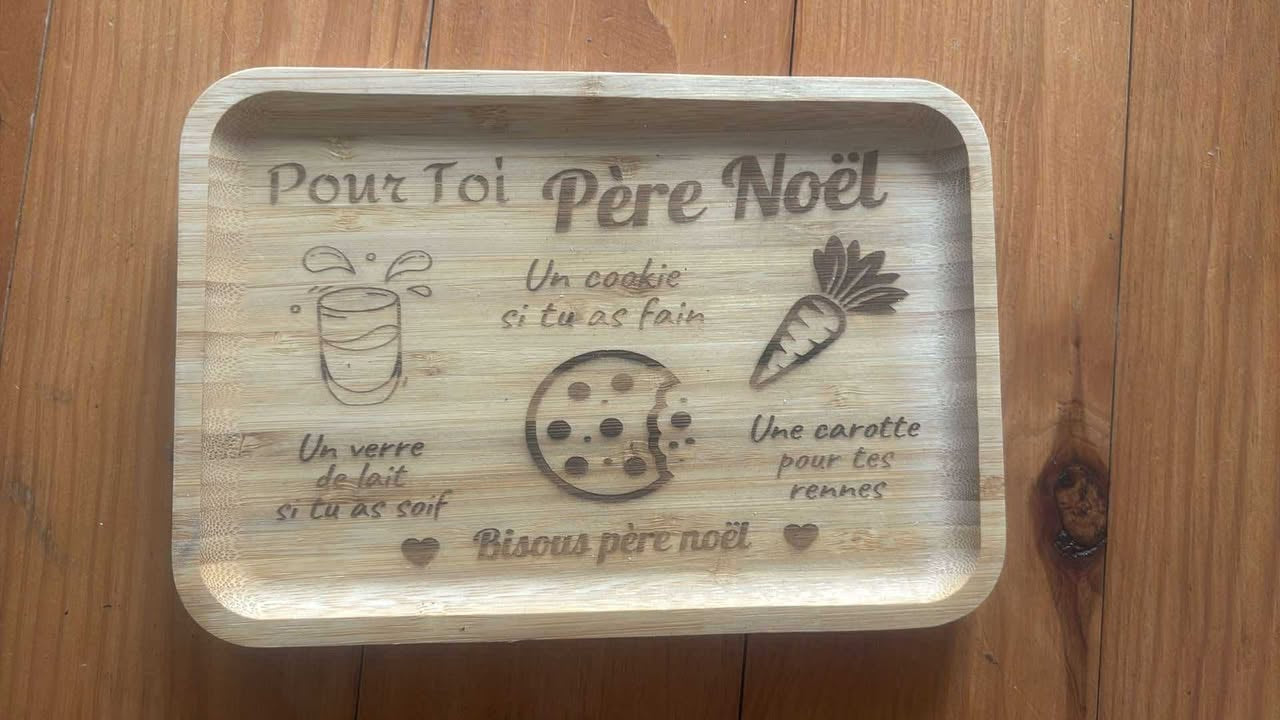 Pour Toi Père Noël
Un cookie
si tu as fain
Un verre
de lait
si tu as soif
Une carotte
pour tes
rennes
Bisous père noël